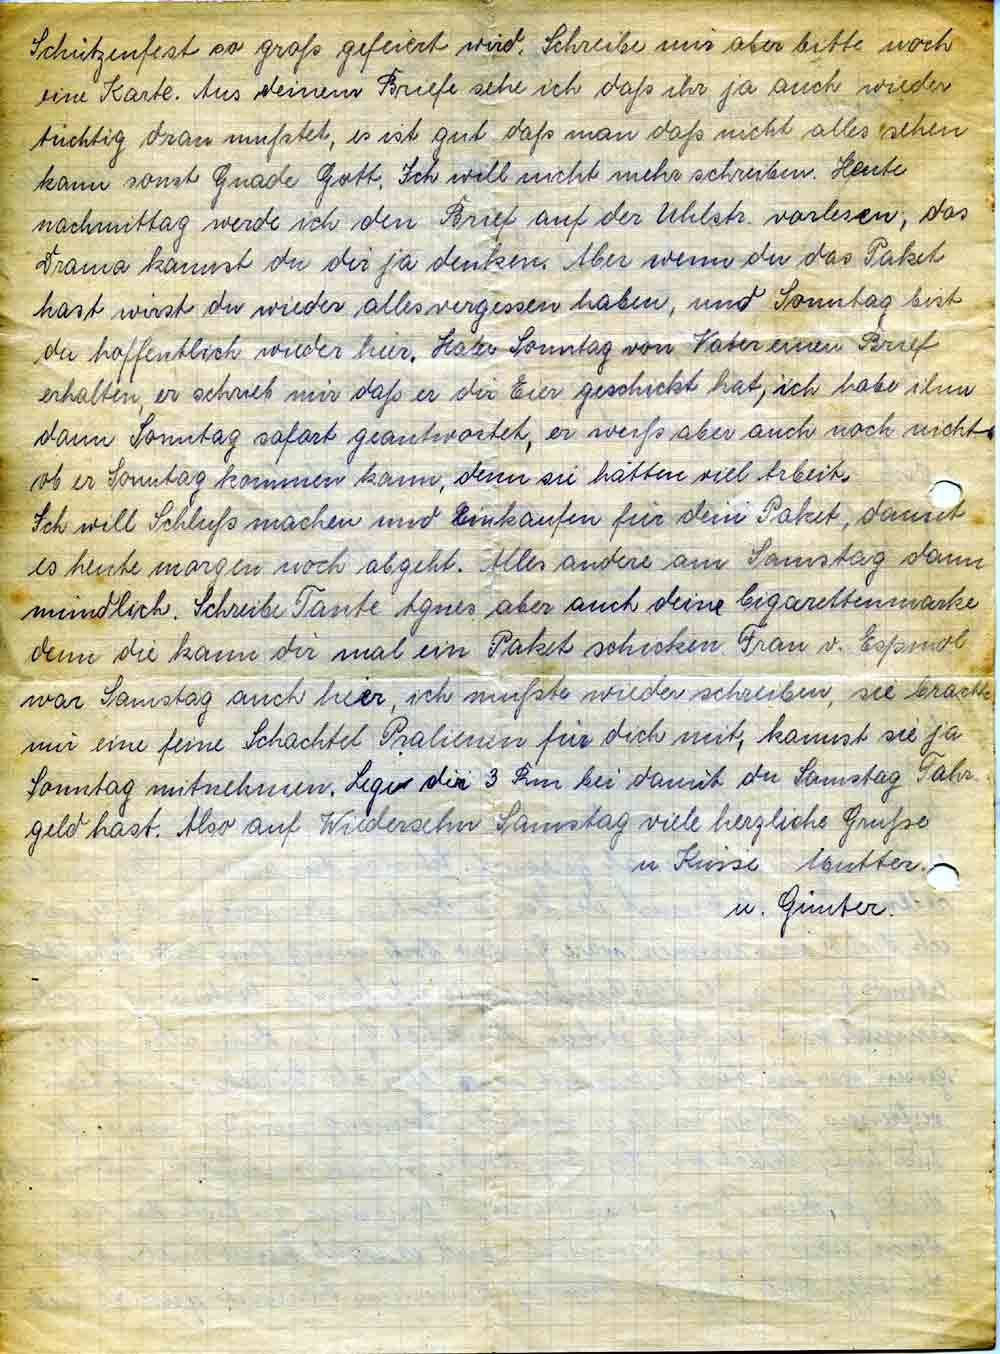 Schützenfest so groß gefeiert wird. Schreibe mir aber bitte noch
eine Karte. Aus deinem Briefe sehe ich daß ihr ja auch wieder
tüchtig dran mußtet, es ist gut daß man daß nicht alles sehen
kann sonst Gnade Gott. Ich will nicht mehr schreiben. Heute
nachmittag werde ich den Brief auf der Uhlstr. vorlesen, das
Drama kannst du dir ja denken. Aber wenn du das Paket
hast wirst du wieder alles vergessen haben, und Sonntag bist
du hoffentlich wieder hier. Habe Sonntag von Vater einen Brief
erhalten, er schrieb mir daß er dir Eier geschickt hat, ich habe ihm
dann Sonntag sofort geantwortet, er weiß aber auch noch nicht
ob er Sonntag kommen kann, denn sie hätten viel Arbeit.
Ich will Schluß machen und Einkaufen für dein Paket, damit
es heute morgen noch abgeht. Alles andere am Samstag dann
mündlich. Schreibe Tante Agnes aber auch deine Cigarettenmarke
denn die kann dir mal ein Paket schicken. Frau v.
war Samstag auch hier, ich mußte wieder schreiben, sie brachte
mir eine feine Schachtel Pralienen für dich mit, kannst sie ja
Sonntag mitnehmen. Lege dir 3 Rm bei damit du Samstag Fahr-
geld hast. Also auf Wiedersehn Samstag viele herzliche Grüße
u Küsse Mutter.
u. Günter.